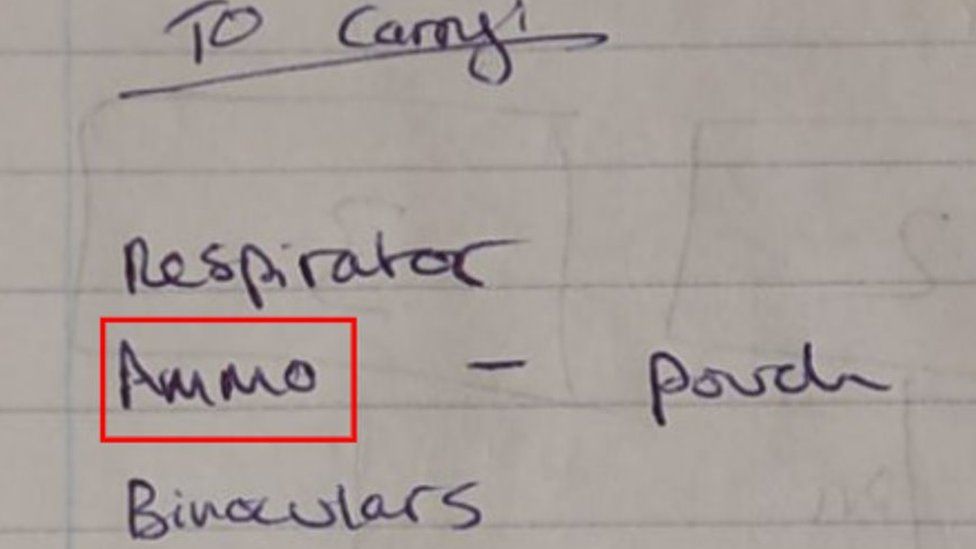 To Carry:
Respirator
Ammo - pouch
Binoculars